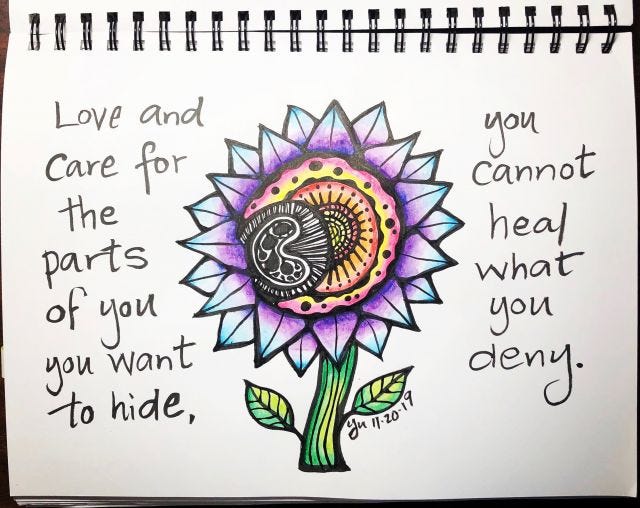 Love and
care for
the
parts
of you
you want
to hide,
you
cannot
heal
what
you
deny.
yu 11-20-19